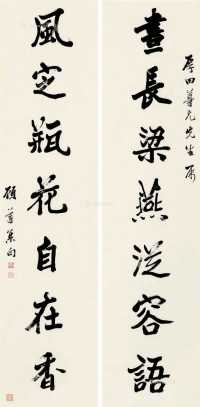 厚田尊兄先生屬
晝長梁燕從容語
風定瓶花自在香
顧蓴集句